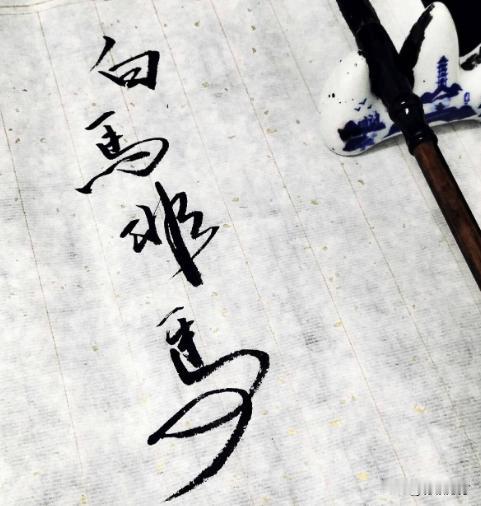 白馬非馬